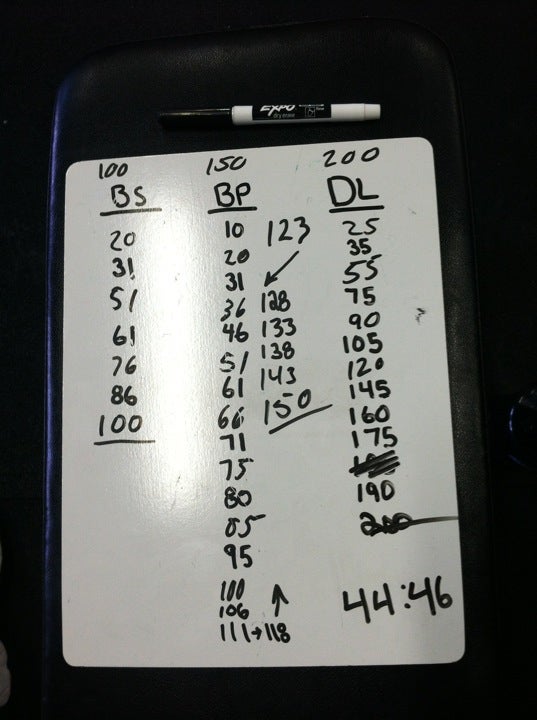 EXPO
dry erase
100
BS
20
31
51
61
76
86
100
150
BP
10
20
31
36
46
51
61
66
71
75
80
85
95
100
106
111→118
123
128
133
138
143
150
200
DL
25
35
55
75
90
105
120
145
160
175
190
200
44:46